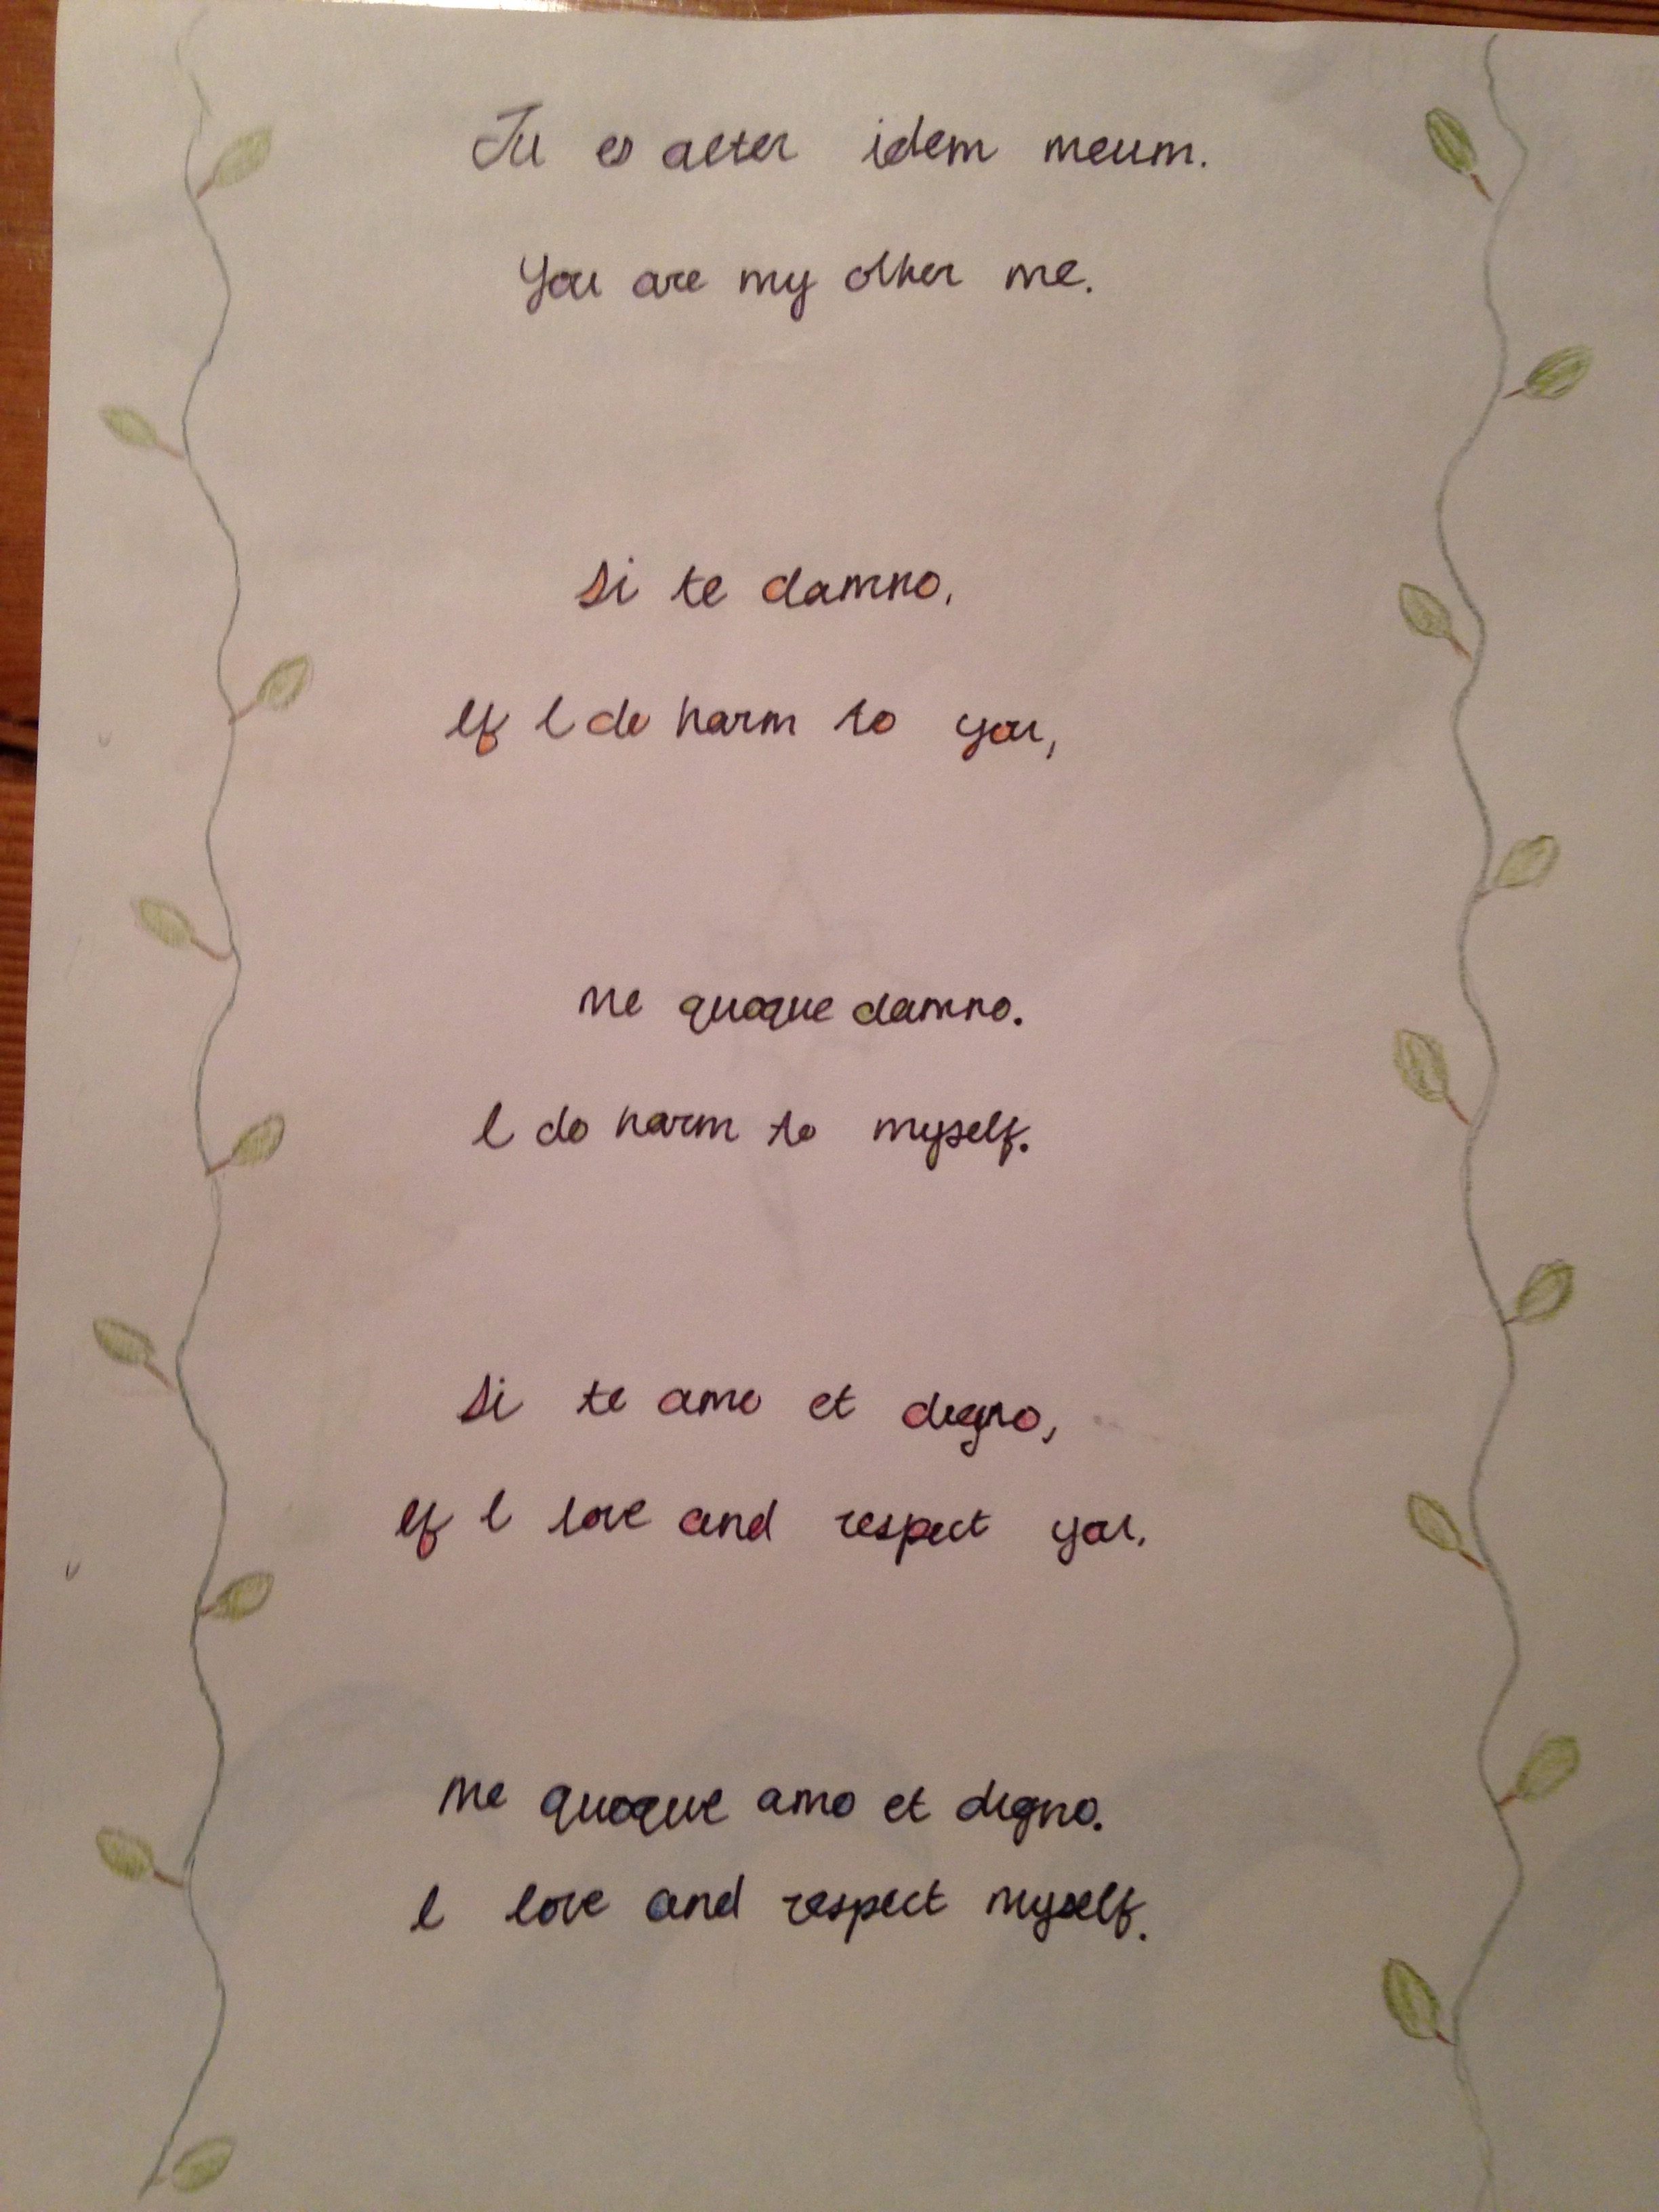 Tu es alter idem meum.
You are my other me.
Si te damno,
If I do harm to you,
me quoque damno.
I do harm to myself.
Si te amo et digno,
If I love and respect you,
me quoque amo et digno.
I love and respect myself.